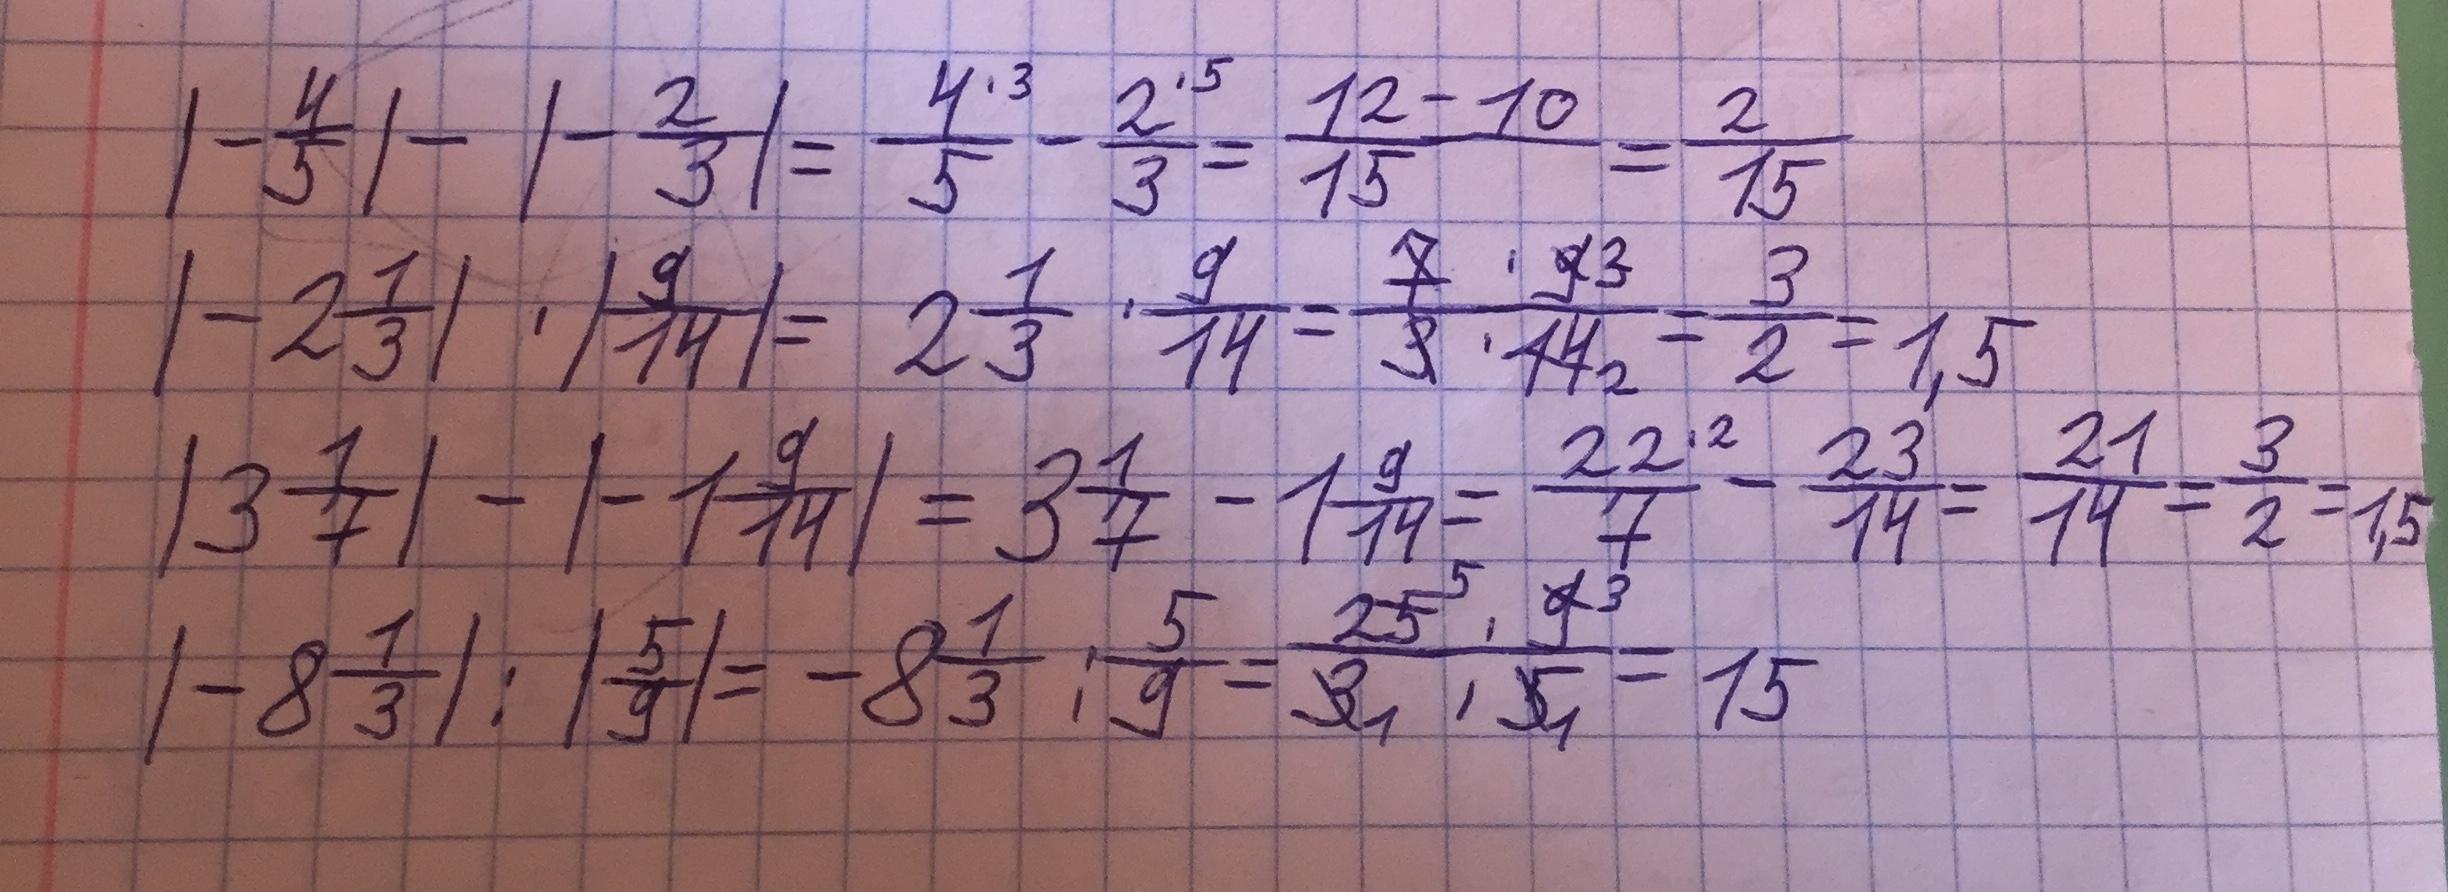 |-4/5| - |-2/3| = 4·3/5 - 2·5/3 = 12-10/15 = 2/15
|-2 1/3| · |9/14| = 2 1/3 · 9/14 = 7·9 3/3·14 2 = 3/2 = 1,5
|3 1/7| - |-1 9/14| = 3 1/7 - 1 9/14 = 22·2/7 - 23/14 = 21/14 = 3/2 = 1,5
|-8 1/3| : |5/9| = -8 1/3 : 5/9 = 25 5·9 3/3 1·5 1 = 15